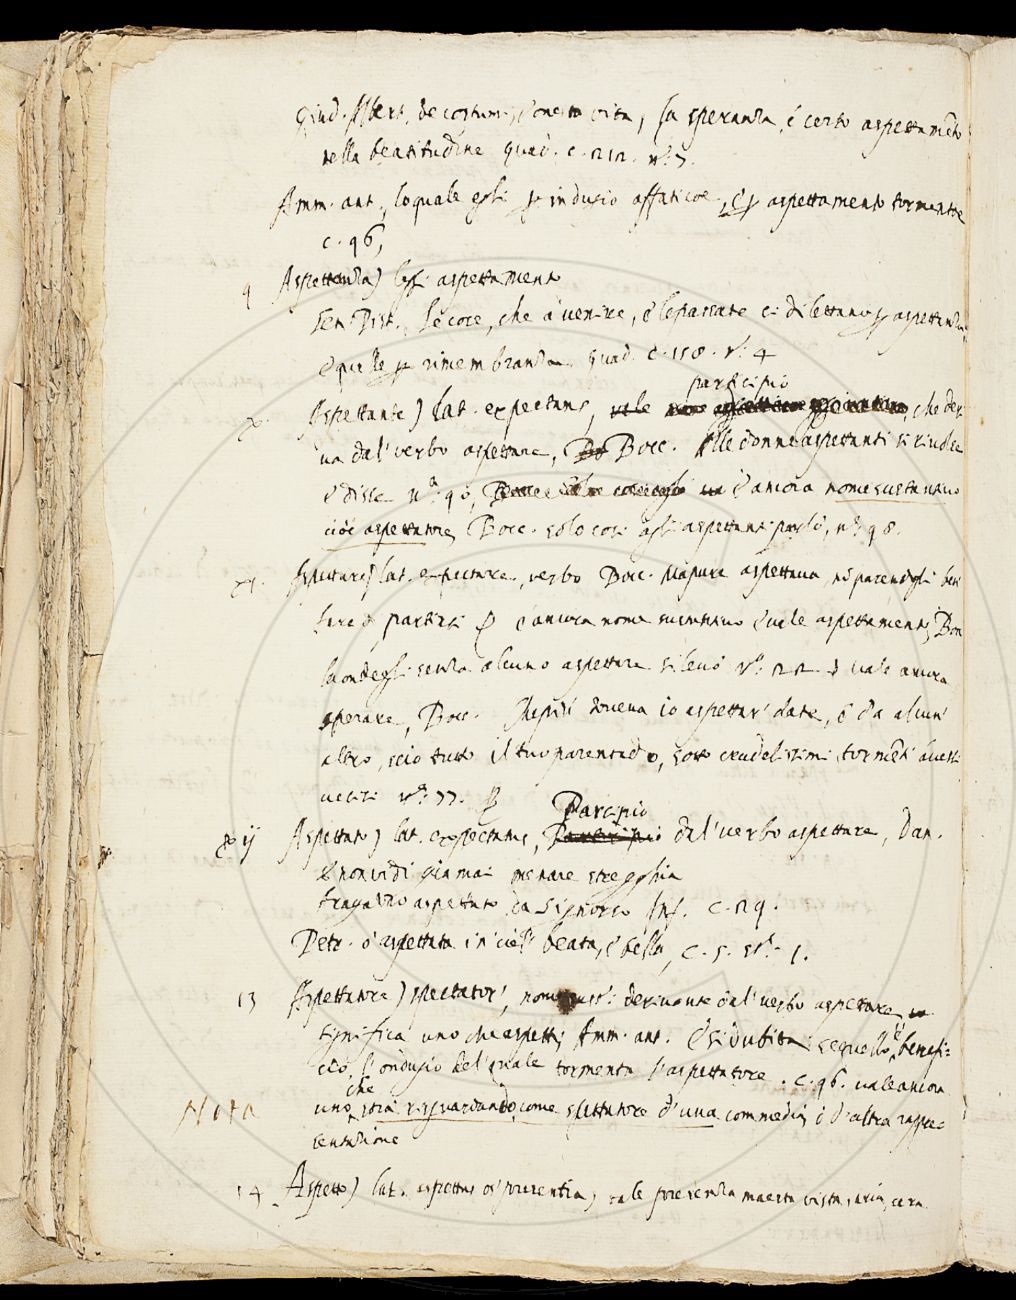 Giud. Albert. de costumi, è onesta vita, la speranza, è certo aspettamẽto
della beatitudine quad. c. 212. n.º 7.
Amm. ant., lo quale egli indugio affaticoe, aspettamento tormentoe
c. 96,
9 Aspettanza) legi aspettamento
Sen. Pist., Le cose, che à venire, è le passate ci dilettano aspettanza,
è quelle rimembranza. quad. c. 158. n.º 4
participio
x. Aspettante) lat. expectans, che deri
va dal' verbo aspettare, Bocc. Alle donne aspettanti si rivolse
è disse n.º 90, è ancora nome sustantivo
cioè aspettatore, Bocc. solo così agli aspettanti parlò, n.º 98.
xi. Aspettare) lat. expectare, verbo Bocc. Ma pure aspettava, nõ parendogli ben
fare à partirsi è ancora nome sustantivo è vale aspettamento, Bocc
laonde gli senza alcuno aspettare si levò n.º 22 vale ancora
sperare, Bocc. Che più doveva io aspettar' da te, ò da alcun'
altro, se io tutto il tuo parentado, sotto crudelissimi tormẽti avessi
uccisi n.º 77.
Parcipio
xij Aspettato) lat. expectatus, dal' verbo aspettare, Dan.
E non vidi giamai menare stregghia
a ragazzo aspettato da signorso Inf. c. 29.
Petr. ò aspettata in' ciel' beata, è bella, c. 5. st.ª 1.
13 Aspettatore) spectator', nome derivante dal' verbo aspettare
significa uno che aspetti, Amm. ant. E si dubita se quello è benefi:
cio, l' indugio del' quale tormenta l' aspettatore. c. 96. vale ancora
che
Nota uno, stia risguardando, come spettatore d' una commedia, ò d' altra rappre:
sentazione
14. Aspetto) lat. aspectus os' presentia, vale presenza maestà vista, aria, cera